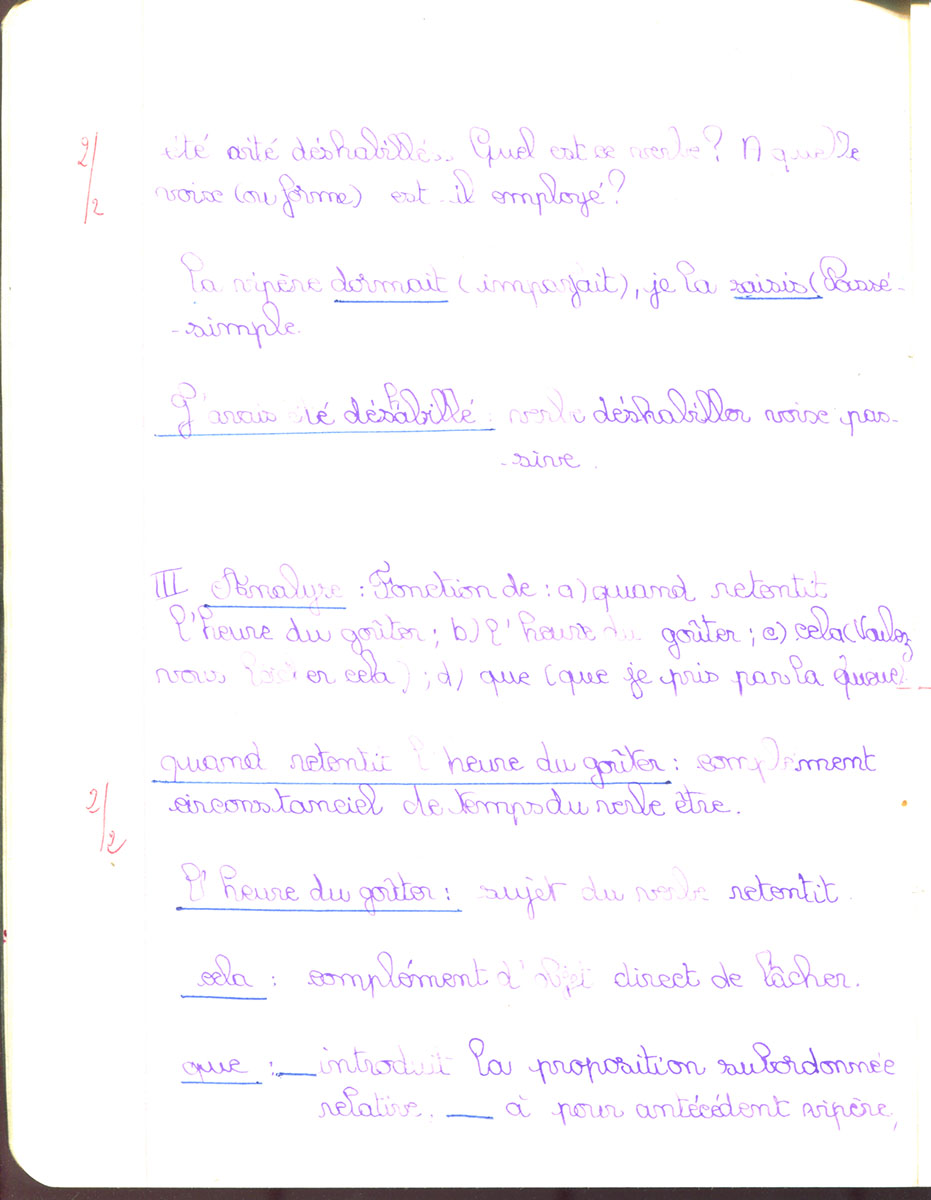 2/2
été déshabillé... Quel est ce verbe? A quelle
voix (ou forme) est-il employé?
la vipère dormait (imparfait), je la saisis (Passé-
-simple.
J'avais été déshabillé : verbe déshabiller voix pas-
-sive.
III Analyse : Fonction de : a) quand retentit
l'heure du goûter; b) l'heure du goûter; c) cela (Voulez
vous en cela); d) que (que je pris par la queue)
quand retentit l'heure du goûter : complément
circonstanciel de temps du verbe être.
2/2
l'heure du goûter : sujet du verbe retentit.
cela : complément d'objet direct de lâcher.
que : — introduit la proposition subordonnée
relative. — a pour antécédent vipère,